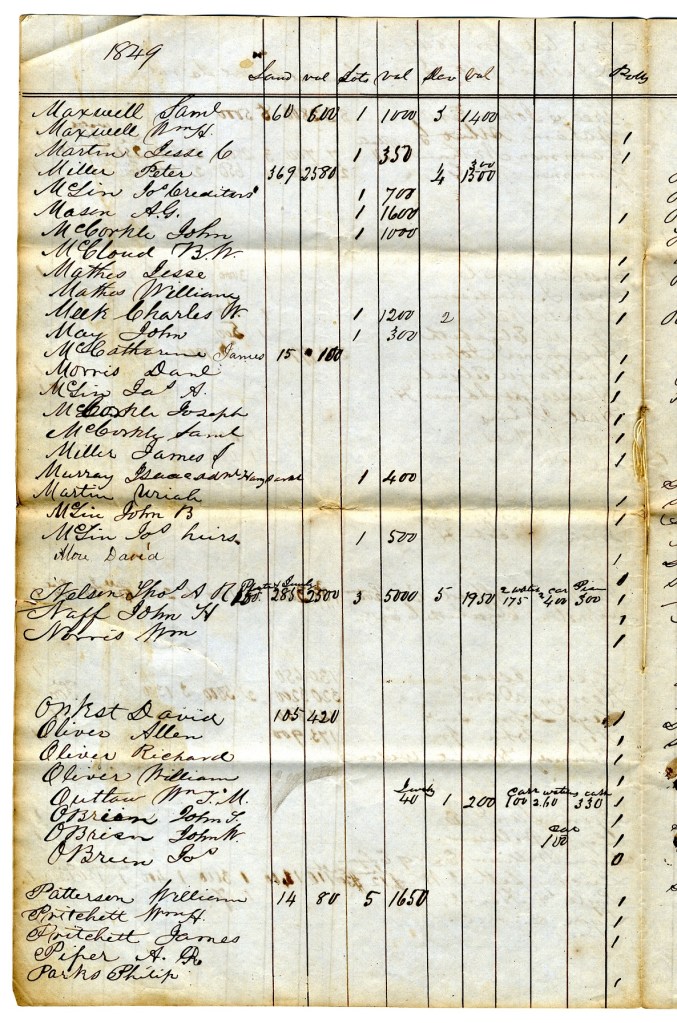 1849
Land val Lots val Slav val Polls
Maxwell Saml 60 600 1 1000 3 1400
Maxwell Wm H. 1
Martin Jesse C 1 350 1
Miller Peter 369 2580 4 1300
McLin Jos Creditors 1 700
Mason A.G. 1 1600 1
McCorkle John 1 1000
McCloud B.W. 1
Mathes Jesse 1
Mathes William 1
Meek Charles W 1 1200 2 1
May John 1 300
James 15 100
Morris Danl 1
McLin Jas A. 1
McCorkle Joseph 1
McCorkle Saml 1
Miller James S 1
Murray 1 400
Martin Uriah 1
McLin John B 1
McLin Jos heirs 1 500
More David 1
Nelson Thos A R 285 2500 3 5000 5 1950 2 watches 175 2 car 400 Pian 300 1
Naff John H 1
Norris Wm 1
Onkst David 105 420 1
Oliver Allen 1
Oliver Richard 1
Oliver William 1
Outlaw Wm T. M. 40 1 200 carr 100 watches 2.60 330 1
OBrien John F. 1
OBrien John W. car 100 1
OBrien Jos 0
Patterson William 14 80 5 1650 1
Pritchett Wm H. 1
Pritchett James 1
Piper A. R
Parks Philip 1